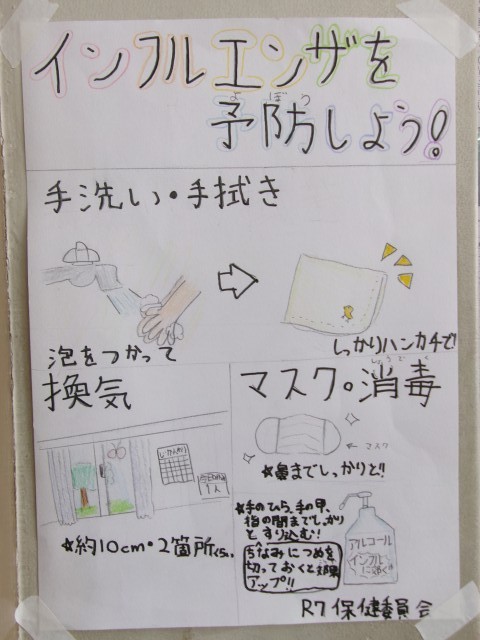 インフルエンザを
よぼう
予防しよう!
手洗い・手拭き
泡をつかって
しっかりハンカチで!
換気
じかんわり
1人
★約10cm・2箇所くらい
しょうどく
マスク。消毒
← マスク
★鼻までしっかりと!!
★手のひら、手の甲、
指の間までしっかり
とすり込む!
ちなみにつめを
切っておくと効果
アップ!!
アルコール
インフル
に効く
R7 保健委員会